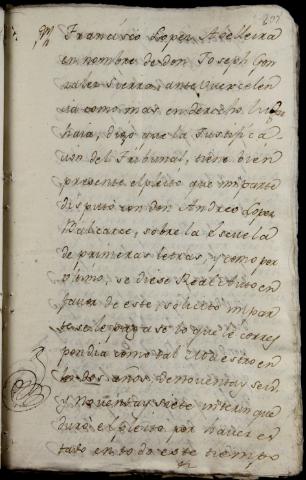 207
Francisco Lopez Adelleira
en nombre de don Joseph Gon
zalez Sierra, ante Vuexcelen
cia como mas en derecho lugar
haia, digo que la Justifica
cion del Tribunal, tiene vien
presente el pleito que mi parte
disputó con don Andres Lopez
Balcarce, sobre la escuela
de primeras letras, y como por
ultimo, se diese Real Auto en
favor de este, solicitó mi par
te se le pagase lo que le corres
pondia como tal Maestro en
los dos años, de noventa y seis,
y noventa y siete interin que
duró el pleito por haver es
tado en todo este tiempo